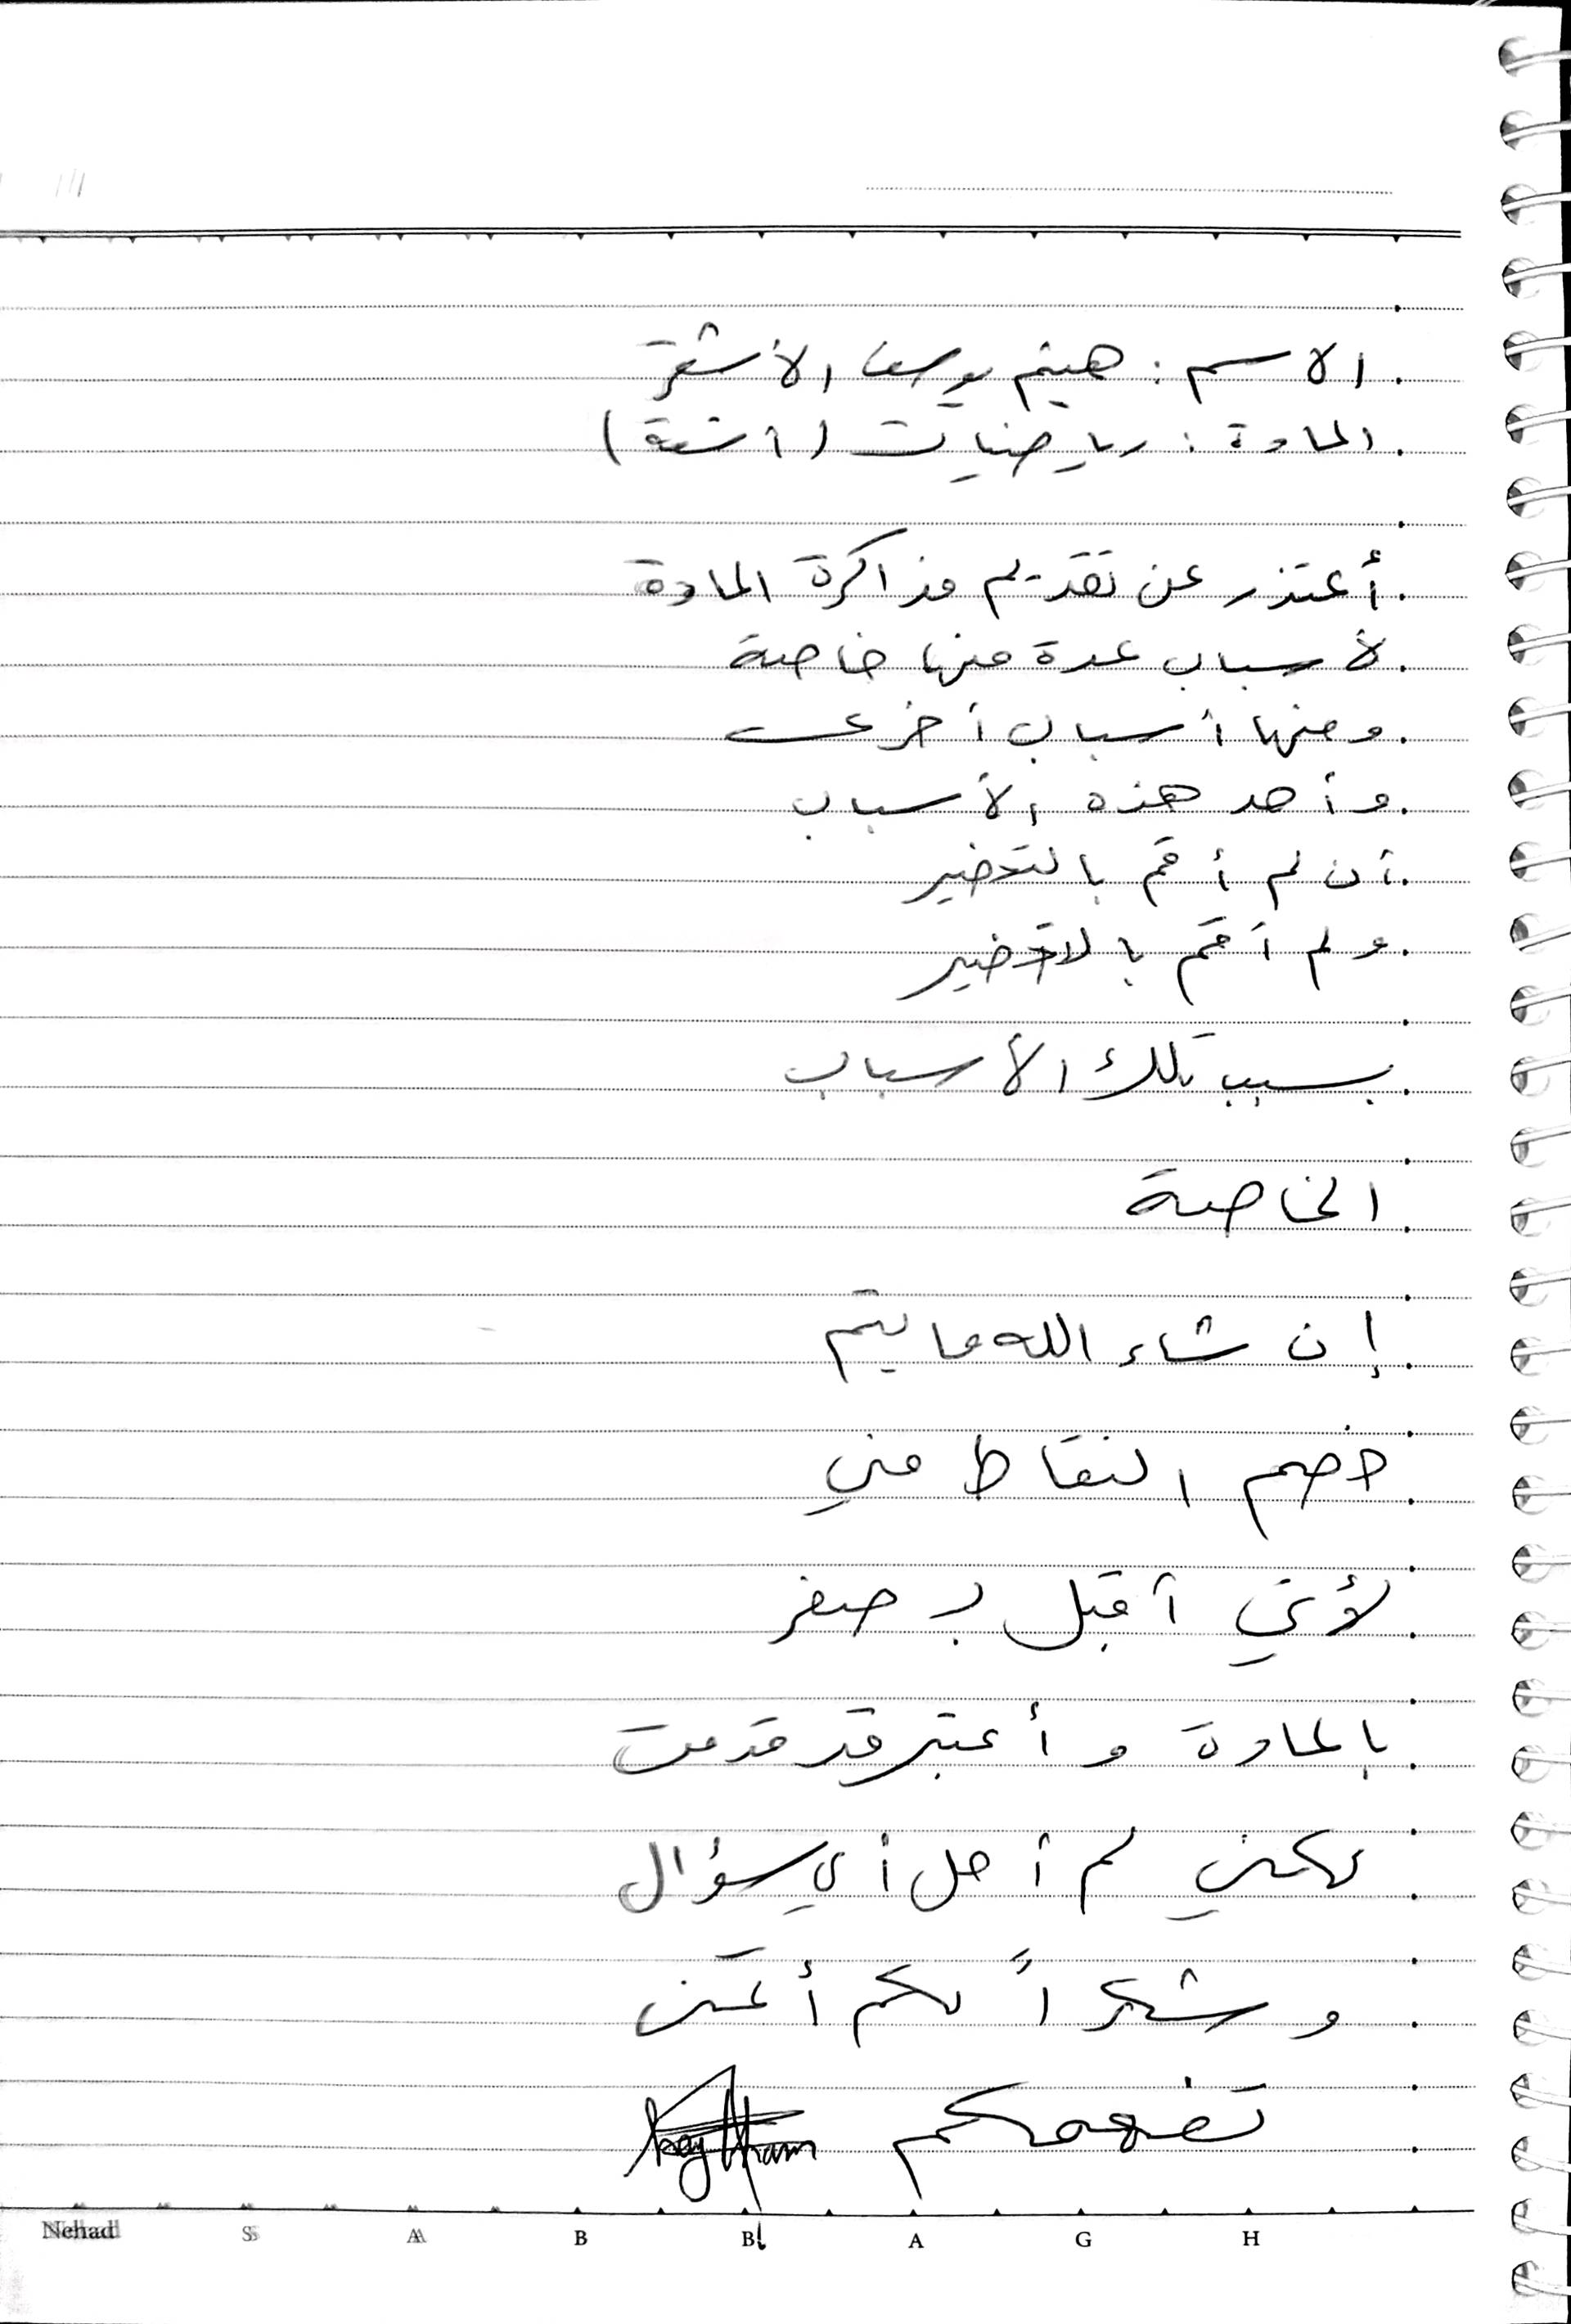 الاسم : هيثم يوسف الأشقر
المادة : رياضيات (أشعة)
أعتذر عن تقديم مذاكرة المادة
لأسباب عدة منها خاصة
ومنها أسباب أخرى
وأحد هذه الأسباب
أن لم أقم بالتحضير
ولم أقم بالتحضير
بسبب تلك الأسباب
الخاصة
إن شاء الله ما يتم
خصم النقاط مني
لأني أقبل بـ صفر
بالمادة وأعتبر قد قدمت
لكنني لم أحل أي سؤال
وشكراً لكم أتمنى
تفهمكم Haytham
Nehad S A B B A G H